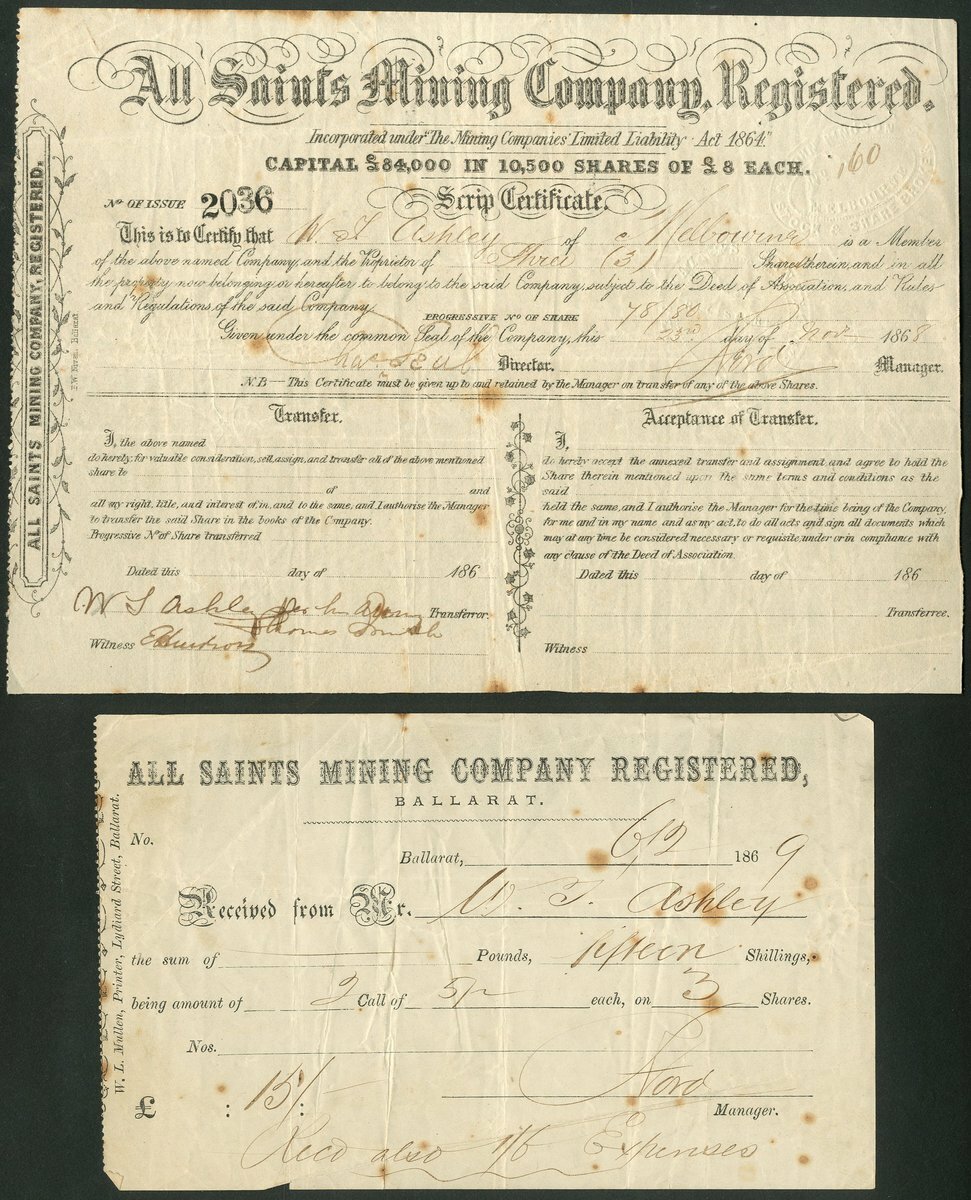 All Saints Mining Company, Registered.
Incorporated under "The Mining Companies' Limited Liability Act 1864"
160
CAPITAL £84,000 IN 10,500 SHARES OF £8 EACH.
No. OF ISSUE 2036 Scrip Certificate.
This is to Certify that W. T Ashley of Melbourne is a Member
of the above named Company, and the Proprietor of Three (3) Shares therein, and in all
the property now belonging or hereafter to belong to the said Company, subject to the Deed of Association, and Rules
and Regulations of the said Company.
PROGRESSIVE No. OF SHARE 78/80
Given under the common Seal of the Company, this 23rd day of Nov 1868
Chas Seal Director. Manager.
N.B.—This Certificate must be given up to and retained by the Manager on transfer of any of the above Shares.
ALL SAINTS MINING COMPANY, REGISTERED.
Ballarat
Transfer.
I, the above named
do hereby, for valuable consideration, sell, assign, and transfer all of the above mentioned
share to
of and
all my right, title, and interest of, in, and to the same, and I authorise the Manager
to transfer the said Share in the books of the Company.
Progressive No. of Share transferred
Dated this day of 186
W T Ashley Transferror.
Thomas
Witness
Acceptance of Transfer.
I,
do hereby accept the annexed transfer and assignment, and agree to hold the
Share therein mentioned upon the same terms and conditions as the
said
held the same, and I authorise the Manager for the time being of the Company,
for me and in my name and as my act, to do all acts and sign all documents which
may at any time be considered necessary or requisite, under or in compliance with
any clause of the Deed of Association.
Dated this day of 186
Transferree.
Witness
ALL SAINTS MINING COMPANY REGISTERED,
BALLARAT.
W. L. Mullen, Printer, Lydiard Street, Ballarat.
No.
Ballarat, 1869
Received from Mr. W. T. Ashley
the sum of Pounds, fifteen Shillings,
being amount of 2 Call of 5/- each, on 3 Shares.
Nos.
£ : 15/- :
Manager.
Recd also 1/6 Expenses